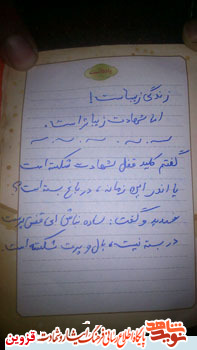 زندگی زیباست!
اما شهادت زیباتر است.
گفتم کلید قفل شهادت شکسته است
یا اندر این زمانه، در باغ بسته است؟
خندید و گفت: ساده نباش ای قفس پرست
در بسته نیست، بال و پرت شکسته است.
نوید شاهد
پایگاه اطلاع رسانی فرهنگ ایثار و شهادت قزوین